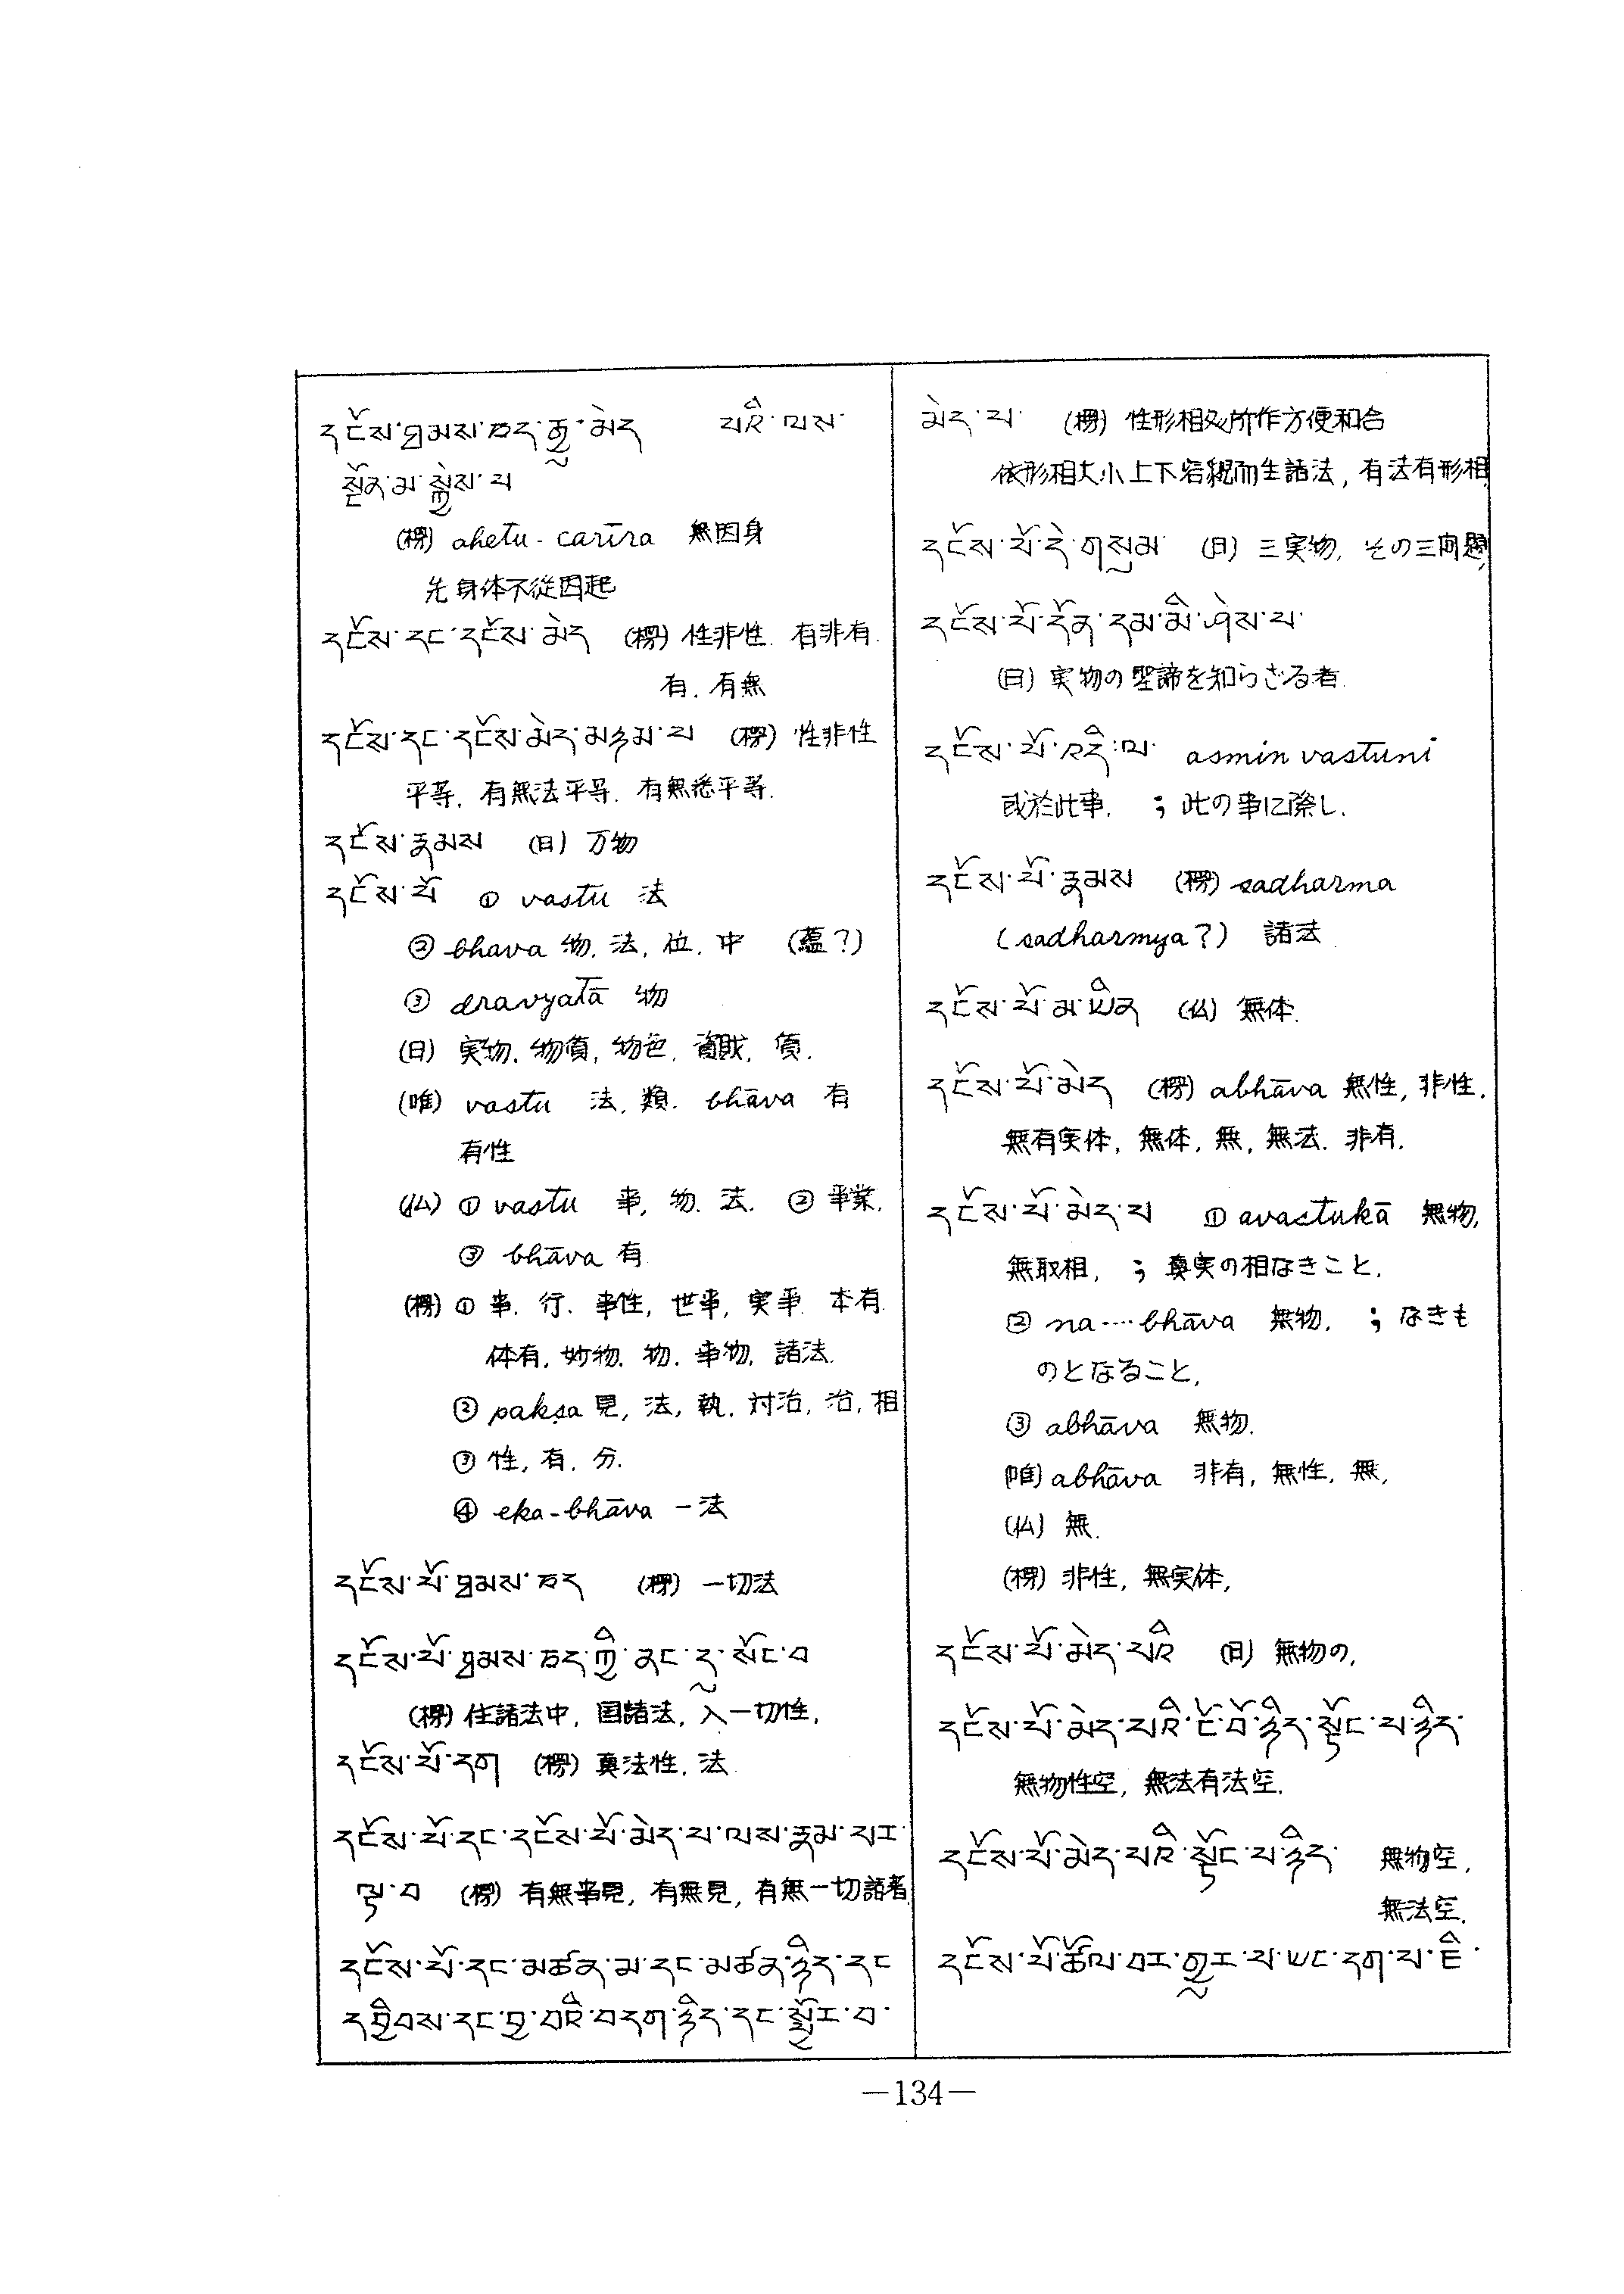 དངོས་ཐམས་ཅད་རྒྱུ་མེད པའི་ལས་
སྔོན་མ་སྐྱེས་པ
(楞) ahetu-carīra 無因身
先身体不從因起
དངོས་དང་དངོས་མེད (楞) 性非性. 有非有.
有. 有無
དངོས་དང་དངོས་མེད་མཉམ་པ (楞) 性非性
平等. 有無法平等. 有無悉平等.
དངོས་རྣམས (日) 万物
དངོས་པོ ① vastu 法
② bhava 物. 法. 位. 中 (蘊?)
③ dravyatā 物
(日) 実物. 物質, 物色. 資財. 質.
(唯) vastu 法. 類. bhāva 有
有性
(仏) ① vastu 事, 物. 法. ② 事業.
③ bhāva 有
(楞) ① 事. 行. 事性, 世事, 実事. 本有.
体有. 妙物. 物. 事物. 諸法.
② pakṣa 見, 法, 執. 対治, 治, 相
③ 性, 有. 分.
④ eka-bhāva 一法
དངོས་པོ་ཐམས་ཅད (楞) 一切法
དངོས་པོ་ཐམས་ཅད་ཀྱི་ནང་དུ་སོང་བ
(楞) 住諸法中, 国諸法, 入一切性,
དངོས་པོ་དག (楞) 真法性. 法.
དངོས་པོ་དང་དངོས་པོ་མེད་པ་ལས་རྣམ་པར་
ལྟ་བ (楞) 有無事見, 有無見, 有無一切諸者
དངོས་པོ་དང་མཚན་མ་དང་མཚན་ཉིད་དང
དབྱིབས་དང་བྱ་བའི་བདག་ཉིད་དང་སྦྱོར་བ་
མེད་པ་ (楞) 性形相処所作方便和合
依形相大小上下容貌而生諸法, 有法有形相
དངོས་པོ་དེ་གསུམ (日) 三実物, その三问題,
དངོས་པོ་དོན་དམ་མི་ཤེས་པ་
(日) 実物の聖諦を知らざる者.
དངོས་པོ་འདི་ལ་ asmin vastuni
或於此事. ; 此の事に際し.
དངོས་པོ་རྣམས (楞) sadharma
(sadharmya?) 諸法
དངོས་པོ་མ་ཡིན (仏) 無体.
དངོས་པོ་མེད (楞) abhāva 無性, 非性.
無有実体, 無体, 無, 無法. 非有.
དངོས་པོ་མེད་པ ① avastukā 無物,
無取相, ; 真実の相なきこと.
② na....bhāva 無物. ; なきも
のとなること,
③ abhāva 無物.
(唯) abhāva 非有, 無性, 無,
(仏) 無.
(楞) 非性, 無実体,
དངོས་པོ་མེད་པའི (日) 無物の,
དངོས་པོ་མེད་པའི་ངོ་བོ་ཉིད་སྟོང་པ་ཉིད་
無物性空, 無法有法空.
དངོས་པོ་མེད་པའི་སྟོང་པ་ཉིད་ 無物空,
無法空.
དངོས་པོ་ཚོལ་བར་གྱུར་པ་ཡང་དག་པ་ཇི་
—134—